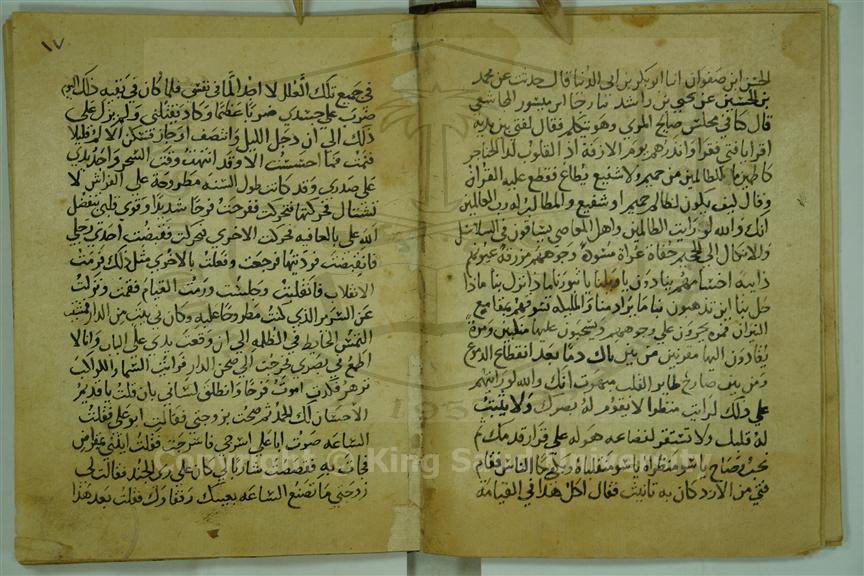 الحسن ابن صفوان انا ابو بكر بن ابي الدنيا قال حدثت عن محمد
بن الحسين عن يحيى بن راشد نا رجا ابن ميسور المجاشعي
قال كنا في مجلس صالح المري وهو يتكلم فقال لفتى بين يديه
اقرا يا فتى فقرا وانذرهم يوم الازفة اذ القلوب لدا الحناجر
كاظمين ما للظالمين من حميم ولا شفيع يطاع فقطع عليه القران
وقال كيف يكون لظالم حميم او شفيع والمطالب له رب العالمين
انك والله لو رايت الظالمين واهل المعاصي يساقون في السلاسل
والانكال الى الجحيم حفاة عراة مسودة وجوههم مزرقة عيونهم
ذايبة اجسامهم ينادون يا ويلنا يا ثبورنا ماذا نزل بنا ماذا
حل بنا اين يذهبون بنا ما يراد منا والمليكه تسوقهم بمقامع
النيران فمره يجرون على وجوههم ويسحبون عليها منكبين ومرة
يقادون اليها مقرنين من بين باك دما بعد انقطاع الدموع
ومن بين صارخ طاير القلب مبهوت انك والله لو رايتهم
على ذلك لرايت منظرا لا يقوم له بصرك ولا يثبت
له قلبك ولا تستقر لفضاعه هوله على قرار قدمك ثم
نحب وصاح يا سو منظراه يا سو منقلباه وبكى وبكا الناس فقام
فتى من الازد كان به تانيث فقال اكل هذا في القيامة
١٧
في جميع تلك العلل لا اجد الما في نفسي فلما كان في بقيه ذلك اليوم
ضرب على جسدي ضربا عظيما وكاد يقتلني ولم يزل على
ذلك الى ان دخل الليل وانتصف او جاز فسكن الالم قليلا
فنمت فما احسست الا وقد انتبهت وقت السحر واحد يدي
على صدري وقد كانت طول السنه مطروحة على الفراش لا
تشتال فحركتها فتحركت ففرحت فرحا شديدا وقوى قلبي بتفضل
الله علي بالعافيه فحركت الاخرى فتحركت فقبضت احدى رجلي
فانقبضت فرددتها فرجعت وفعلت بالاخرى مثل ذلك فرمت
الانقلاب فانقلبت وجلست ورمت القيام فقمت ونزلت
عن السرير الذي كنت مطروحا عليه وكان في بيت من الدار فمشيت
التمس الحايط في الظلمه الى ان وقعت يدي على الباب وانا لا
اطمع في بصري فخرجت الى صحن الدار فرايت السما والكواكب
تزهر فكدت اموت فرحا وانطلق لساني بان قلت يا قديم
الاحسان لك الحمد ثم صحت بزوجتي فقالت ابو علي فقلت
الساعه صرت ابا علي اسرجي فاسرجت فقلت ايتني بمقراض
فجات به فقصصت شاربا لي كان على زي الجند فقالت لي
زوجتي ما تصنع الساعه يعيبك رفقاوك فقلت بعد هذا